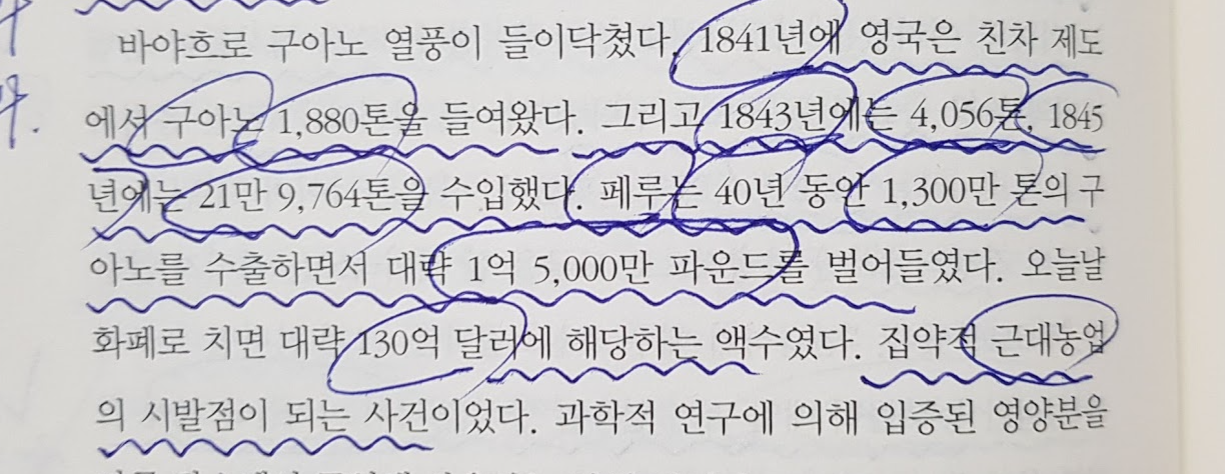 바야흐로 구아노 열풍이 들이닥쳤다. 1841년에 영국은 친차 제도
에서 구아노 1,880톤을 들여왔다. 그리고 1843년에는 4,056톤, 1845
년에는 21만 9,764톤을 수입했다. 페루는 40년 동안 1,300만 톤의 구
아노를 수출하면서 대략 1억 5,000만 파운드를 벌어들였다. 오늘날
화폐로 치면 대략 130억 달러에 해당하는 액수였다. 집약적 근대농업
의 시발점이 되는 사건이었다. 과학적 연구에 의해 입증된 영양분을